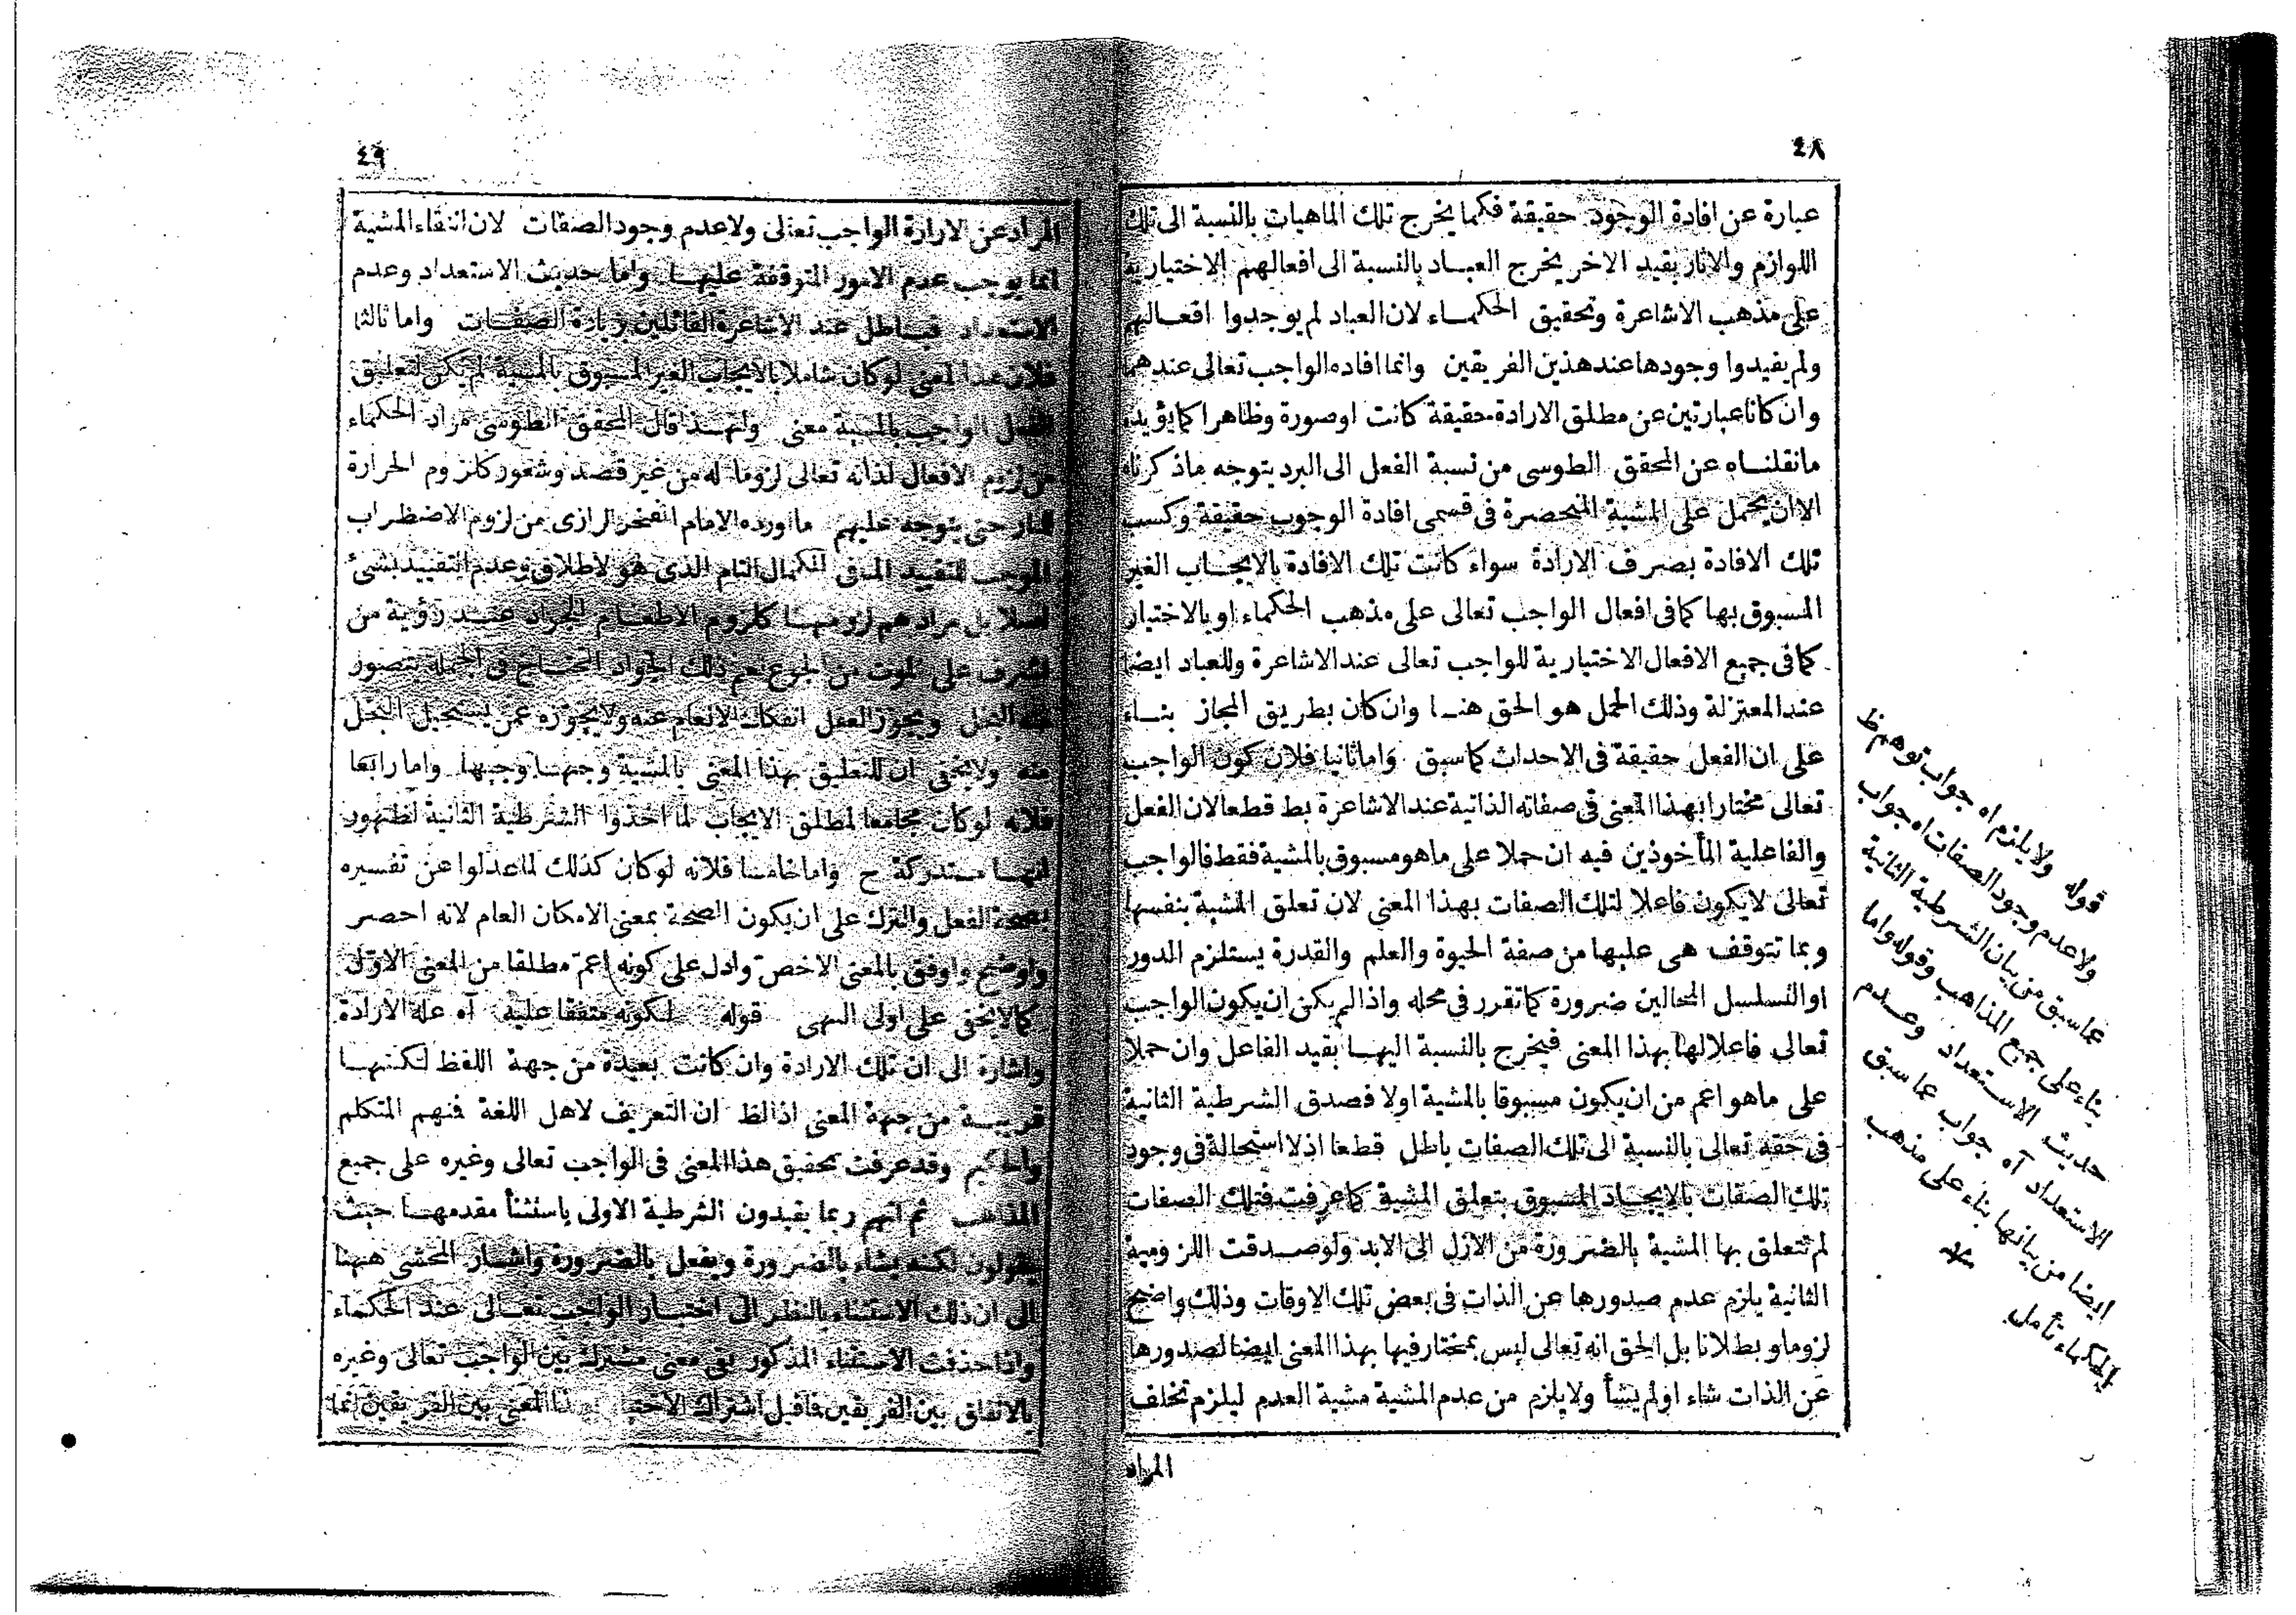 ٤٨
عبارة عن افادة الوجود حقيقة فكما يخرج تلك الماهيات بالنسبة الى تلك
اللوازم والاثار بقيد الاخر يخرج العباد بالنسبة الى افعالهم الاختيارية
على مذهب الاشاعرة وتحقيق الحكماء لان العباد لم يوجدوا افعالهم
ولم يفيدوا وجودها عند هذين الفريقين وانما افاده الواجب تعالى عندهما
وان كانا عبارتين عن مطلق الارادة حقيقة كانت او صورة وظاهرا كما يؤيده
ما نقلناه عن المحقق الطوسى من نسبة الفعل الى البرد يتوجه ماذكرناه
الا ان يحمل على المشية المنحصرة فى قسمى افادة الوجوب حقيقة وكسب
تلك الافادة بصرف الارادة سواء كانت تلك الافادة بالايجاب الغير
المسبوق بها كما فى افعال الواجب تعالى على مذهب الحكماء او بالاختيار
كما فى جميع الافعال الاختيارية للواجب تعالى عند الاشاعرة وللعباد ايضا
عند المعتزلة وذلك الحمل هو الحق هنا وان كان بطريق المجاز بناء
على ان الفعل حقيقة فى الاحداث كما سبق واما ثانيا فلان كون الواجب
تعالى مختارا بهذا المعنى فى صفاته الذاتية عند الاشاعرة بط قطعا لان الفعل
والفاعلية المأخوذين فيه ان حملا على ما هو مسبوق بالمشية فقط فالواجب
تعالى لا يكون فاعلا لتلك الصفات بهذا المعنى لان تعلق المشية بنفسها
وبما تتوقف هى عليها من صفة الحيوة والعلم والقدرة يستلزم الدور
او التسلسل المحالين ضرورة كما تقرر فى محله واذا لم يكن ان يكون الواجب
تعالى فاعلا لها بهذا المعنى فيخرج بالنسبة اليها بقيد الفاعل وان حملا
على ما هو اعم من ان يكون مسبوقا بالمشية اولا فصدق الشرطية الثانية
فى حقه تعالى بالنسبة الى تلك الصفات باطل قطعا اذ لا استحالة فى وجود
تلك الصفات بالايجاد المسبوق بتعلق المشية كما عرفت فتلك الصفات
لم تتعلق بها المشية بالضرورة من الازل الى الابد ولو صدقت اللزومية
الثانية يلزم عدم صدورها عن الذات فى بعض تلك الاوقات وذلك واضح
لزوما وبطلانا بل الحق انه تعالى ليس بمختار فيها بهذا المعنى ايضا لصدورها
عن الذات شاء اولم يشأ ولا يلزم من عدم المشية مشية العدم ليلزم تخلف
المراد
قوله ولا يلزم اه جواب توهم ظ
ولا عدم وجود الصفات اه جواب
عما سبق من بيان الشرطية الثانية
بناء على جميع المذاهب وقوله واما
حديث الاستعداد وعدم
الاستعداد آه جواب عما سبق
ايضا من بيانها بناء على مذهب
الحكماء تأمل
٤٩
المراد عن الارادة الواجب تعالى ولا عدم وجود الصفات لان انتفاء المشية
انما يوجب عدم الامور المتوقفة عليها واما حديث الاستعداد وعدم
الاستعداد فباطل عند الاشاعرة القائلين بزيادة الصفات واما ثالثا
فلان هذا المعنى لو كان شاملا بالايجاب الغير المسبوق بالمشية لم يكن لتعليق
الفعل الواجب بالمشية معنى ولهذا قال المحقق الطوسى مراد الحكماء
من لزوم الافعال لذاته تعالى لزوما له من غير قصد وشعور كلزوم الحرارة
للنار حتى يتوجه عليهم ما اورده الامام الفخر الرازى من لزوم الاضطراب
الموجب للتقييد المنافى للكمال التام الذى هو الاطلاق وعدم التقييد بشئ
اصلا بل مرادهم لزومها كلزوم الاطعام للجواد عند رؤية من
اشرف على الموت من الجوع نعم ذلك الجواد المحتاج فى الجملة يتصور
منه البخل ويجوز العقل انفكاك الانعام عنه ولا يجوزه عمن يستحيل البخل
منه ولا يخفى ان للتعليق بهذا المعنى بالمشية وجها وجيها واما رابعا
فلانه لو كان مجامعا لمطلق الايجاب لما اخذوا الشرطية الثانية لظهور
انها مستدركة ح واما خامسا فلانه لو كان كذلك لما عدلوا عن تفسيره
بصحة الفعل والترك على ان يكون الصحة بمعنى الامكان العام لانه احصر
واوضح واوفق بالمعنى الاخص وادل على كونه اعم مطلقا من المعنى الاول
كما لا يخفى على اولى النهى قوله لكونه متفقا عليه آه علة الارادة
واشارة الى ان تلك الارادة وان كانت بعيدة من جهة اللفظ لكنها
قريبة من جهة المعنى اذ الظ ان التعريف لاهل اللغة فمنهم المتكلم
والحكيم وقد عرفت تحقيق هذا المعنى فى الواجب تعالى وغيره على جميع
المذاهب ثم انهم ربما يقيدون الشرطية الاولى باستثنأ مقدمها حيث
يقولون لكنه يشاء بالضرورة ويفعل بالضرورة واشار المحشى ههنا
الى ان ذلك الاستثناء بالنظر الى اختيار الواجب تعالى عند الحكماء
واذا حذفت الاستثناء المذكور بقى معنى مشترك بين الواجب تعالى وغيره
بالاتفاق بين الفريقين فما قيل اشتراك المعنى بين الفريقين انما